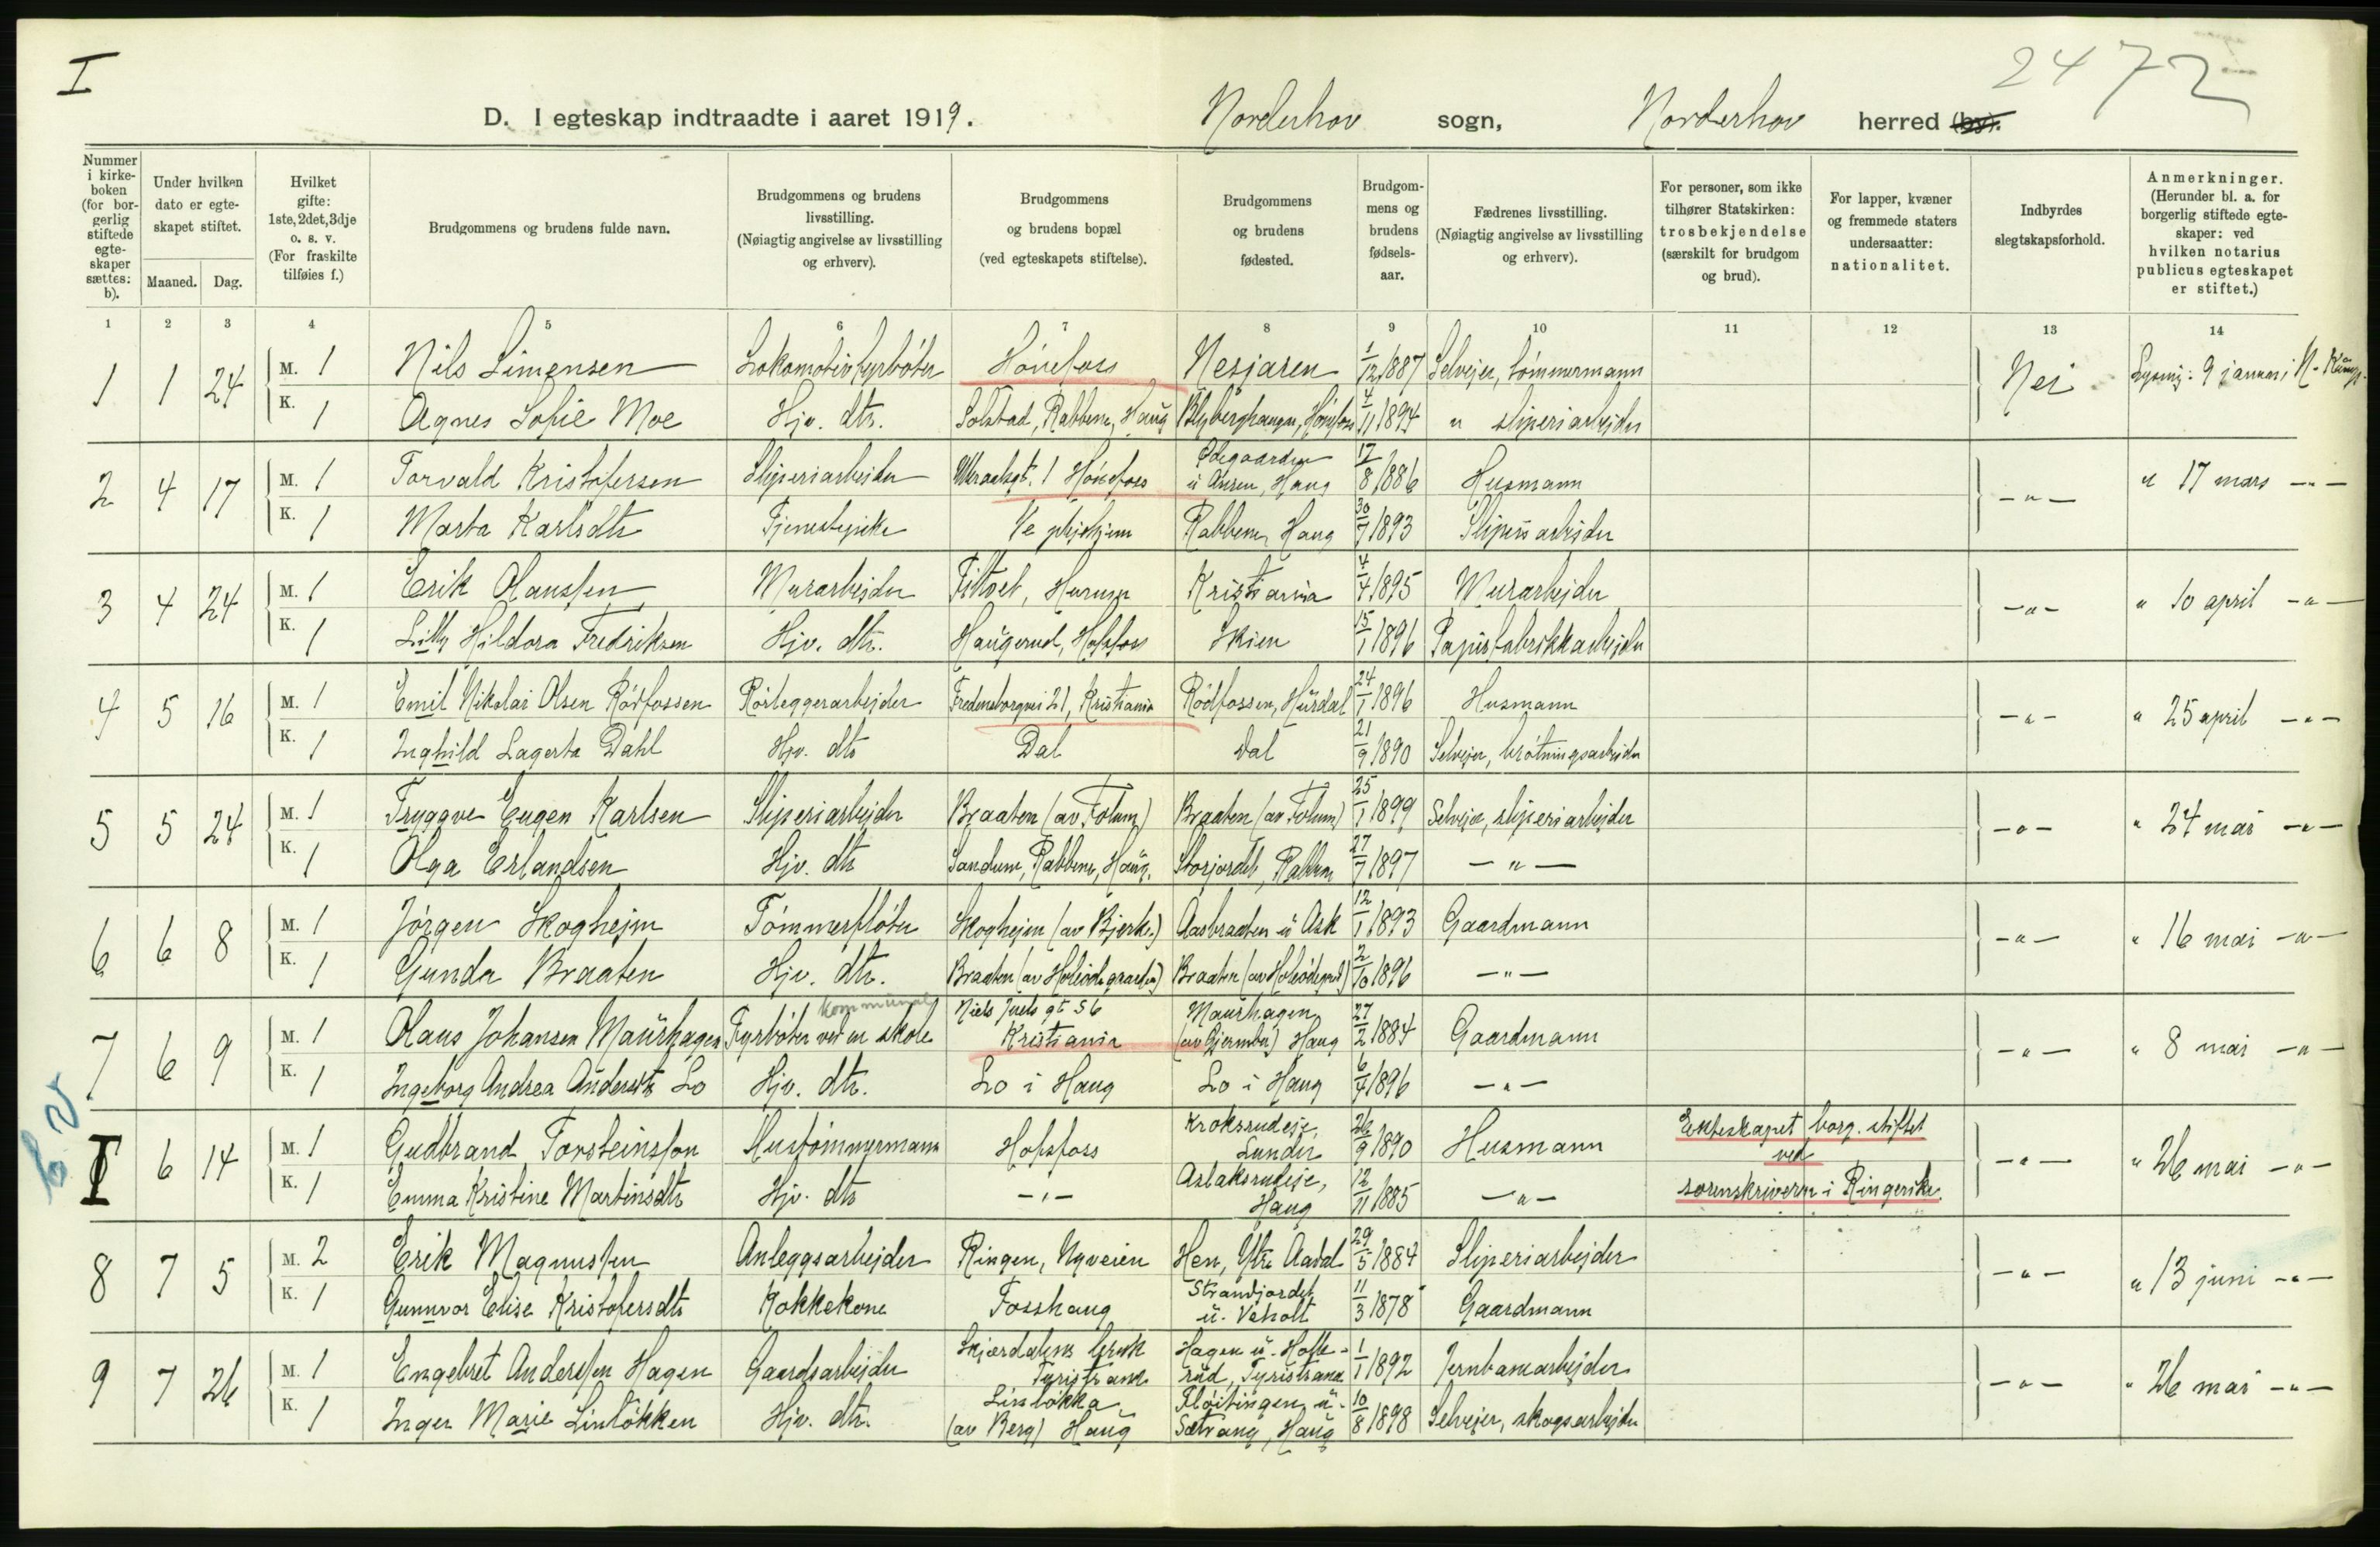 I
2472
D. I egteskap indtraadte i aaret 1919. Norderhov sogn, Norderhov herred (by).
Nummer i kirkeboken (for borgerlig stiftede egteskaper sættes: b).
Under hvilken dato er egteskapet stiftet.
Maaned. Dag.
Hvilket gifte: 1ste, 2det, 3dje o. s. v. (For fraskilte tilføies f.)
Brudgommens og brudens fulde navn.
Brudgommens og brudens livsstilling. (Nøiagtig angivelse av livsstilling og erhverv).
Brudgommens og brudens bopæl (ved egteskapets stiftelse).
Brudgommens og brudens fødested.
Brudgommens og brudens fødselsaar.
Fædrenes livsstilling. (Nøiagtig angivelse av livsstilling og erhverv).
For personer, som ikke tilhører Statskirken: trosbekjendelse (særskilt for brudgom og brud).
For lapper, kvæner og fremmede staters undersaatter: nationalitet.
Indbyrdes slegtskapsforhold.
Anmerkninger. (Herunder bl. a. for borgerlig stiftede egteskaper: ved hvilken notarius publicus egteskapet er stiftet.)
1 2 3 4 5 6 7 8 9 10 11 12 13 14
1 1 24 M. 1 Nils Simensen Lokomotivfyrbøter Hønefoss Nesjaren 1/12 1887 Selvejer, tømmermann Nei Lysning: 9 januar i N-
K. 1 Agnes Sofie Moe Hjv. dtr. Solstad, Rabbene, Haug Blybergshaugen, Hønefoss 4/11 1894 " sliperiarbejder
2 4 17 M. 1 Torvald Kristofersen Sliperiarbejder 1 Hønefoss Ødegaarden u Aasen, Haug 17/8 1886 Husmann -"- " 17 mars -"-
K. 1 Marta Karlsdtr Tjenestepike Ve plejehjem Rabben, Haug 30/7 1893 Sliperiarbejder
3 4 24 M. 1 Erik Olaussen Murarbejder Kristiania 4/4 1895 Murarbejder -"- " 10 april -"-
K. 1 Lilly Hildora Fredriksen Hjv. dtr. Haugerud, Hofsfoss Skien 15/1 1896 Papirfabrikkarbejder
4 5 16 M. 1 Emil Nikolai Olsen Rödfossen Rörleggerarbejder Fredensborgvei 21, Kristiania Rödfossen, Hurdal 24/1 1896 Husmann -"- " 25 april -"-
K. 1 Inghild Lagerta Dahl Hjv. dtr Dal Dal 21/9 1890 Selvejer, brötningsarbejder
5 5 24 M. 1 Tryggve Eugen Karlsen Sliperiarbejder Braaten (av Folum) Braaten (av Folum) 25/1 1899 Selvejer, sliperiarbejder -"- " 24 mai -"-
K. 1 Olga Erlandsen Hjv. dtr Sandum, Rabbene, Haug. Storjordet, Rabben 27/7 1897 -"-
6 6 8 M. 1 Jörgen Skoghejm Tömmerflöter Skoghejm (av Bjerke) Aasbraaten u Ask 12/1 1893 Gaardmann -"- " 16 mai -"-
K. 1 Gunda Braaten Hjv. dtr. Braaten (av Holeödegaarden) Braaten (av Holeödegrd) 2/10 1896 -"-
7 6 9 M. 1 Olaus Johansen Maurhagen Fyrböter ved en kommunal skole Niels Juels gt 56 Kristiania Maurhagen (av Gjermbo) Haug 27/2 1884 Gaardmann -"- " 8 mai -"-
K. 1 Ingeborg Andrea Andersdtr Lo Hjv. dtr. Lo i Haug Lo i Haug 6/4 1896 -"-
I 6 14 M. 1 Gudbrand Torsteinsson Hustömmermann Hofsfoss Kroksrudeje, Lunder 26/9 1890 Husmann Ekteskapet borg. stiftet ved sorenskriveren i Ringerike -"- " 26 mai -"-
K. 1 Emma Kristine Martinsdtr Hjv. dtr -"- Aslaksrudeje, Haug 12/11 1885 -"-
8 7 5 M. 2 Erik Magnussen Anleggsarbejder Ringen, Nyveien Hen, Ytre Aadal 29/5 1884 Sliperiarbejder -"- " 13 juni -"-
K. 1 Gunnvor Elise Kristofersdtr Kokkekone Fosshaug Strandjordet u. Veholt 11/3 1878 Gaardmann
9 7 26 M. 1 Engebret Anderssen Hagen Gaardsarbejder Skjærdalens bruk Tyristrand Hagen u. Holterud, Tyristrand 1/1 1892 Jernbanearbejder -"- " 26 mai -"-
K. 1 Inger Marie Linlökken Hjv. dtr. Linlökka (av Berg) Haug Flöitingen u. Sætrang, Haug 10/8 1898 Selvejer, skogsarbejder